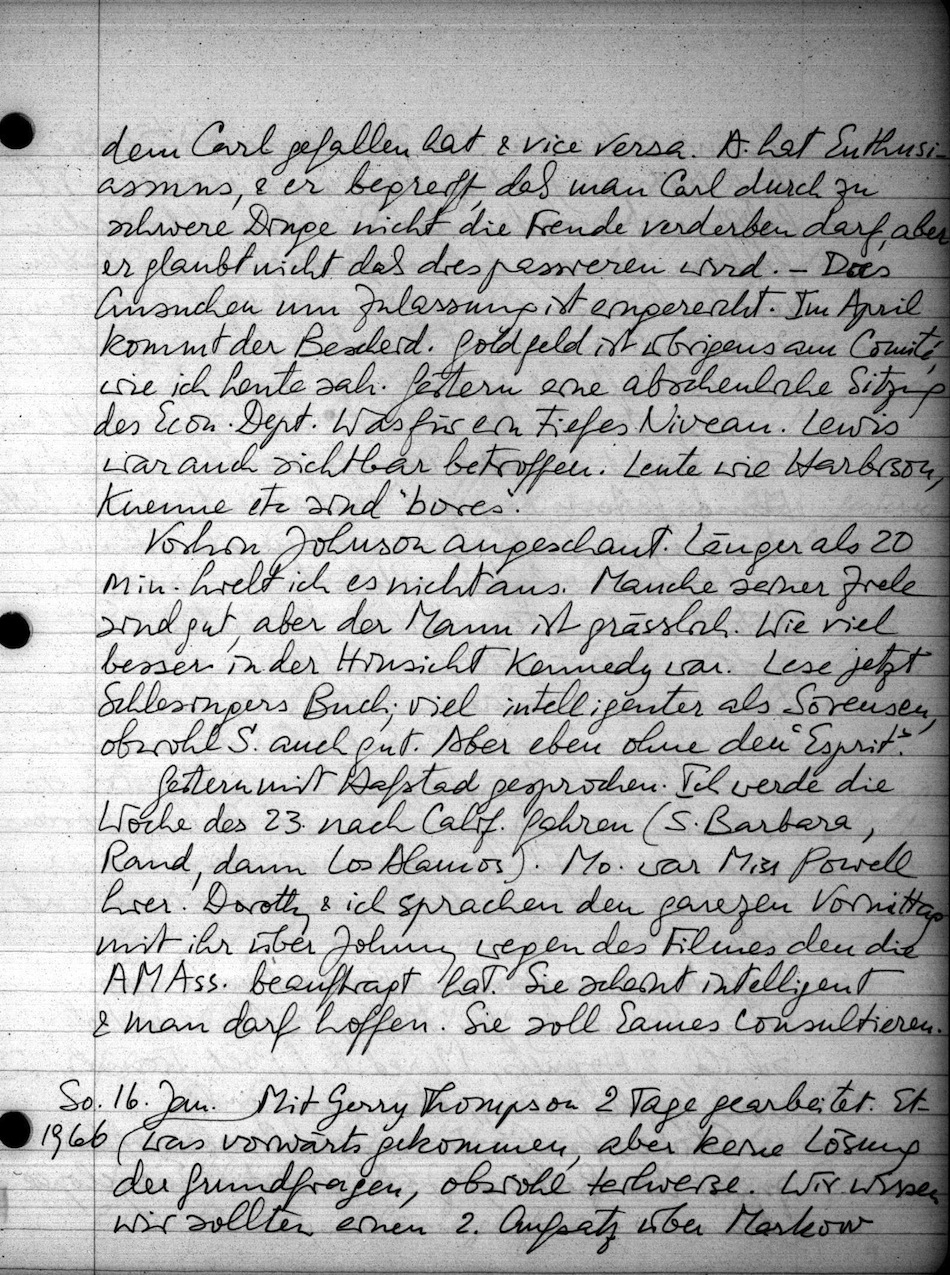 dem Carl gefallen hat & vice versa. A. hat Enthusi-
asmus, & er begreift, daß man Carl durch zu
schwere Dinge nicht die Freude verderben darf, aber
er glaubt nicht daß dies passieren wird. – Das
Ansuchen um Zulassung ist eingereicht. Im April
kommt der Bescheid. Goldfeld ist übrigens am Comité,
wie ich heute sah. Gestern eine abscheuliche Sitzung
des Econ. Dept. Was für ein tiefes Niveau. Lewis
war auch sichtbar betroffen. Leute wie Harbison,
Kuenne etc sind "bores".
Vorhin Johnson angeschaut. Länger als 20
Min. hielt ich es nicht aus. Manche seiner Ziele
sind gut, aber der Mann ist grässlich. Wie viel
besser in der Hinsicht Kennedy war. Lese jetzt
Schlesingers Buch; viel intelligenter als Sorensen,
obwohl S. auch gut. Aber eben ohne den "Esprit".
Gestern mit Hafstad gesprochen. Ich werde die
Woche des 23. nach Calif. fahren (S. Barbara,
Rand, dann Los Alamos). Mo. war Miss Powell
hier. Dorothy & ich sprachen den ganzen Vormittag
mit ihr über Johnny wegen des Filmes den die
AMAss. beauftragt hat. Sie scheint intelligent
& man darf hoffen. Sie soll Eames consultieren.
So. 16. Jan. Mit Gerry Thompson 2 Tage gearbeitet. Et-
1966 was vorwärts gekommen, aber keine Lösung
der Grundfragen, obwohl teilweise. Wir wissen
wir sollten einen 2. Aufsatz über Markow